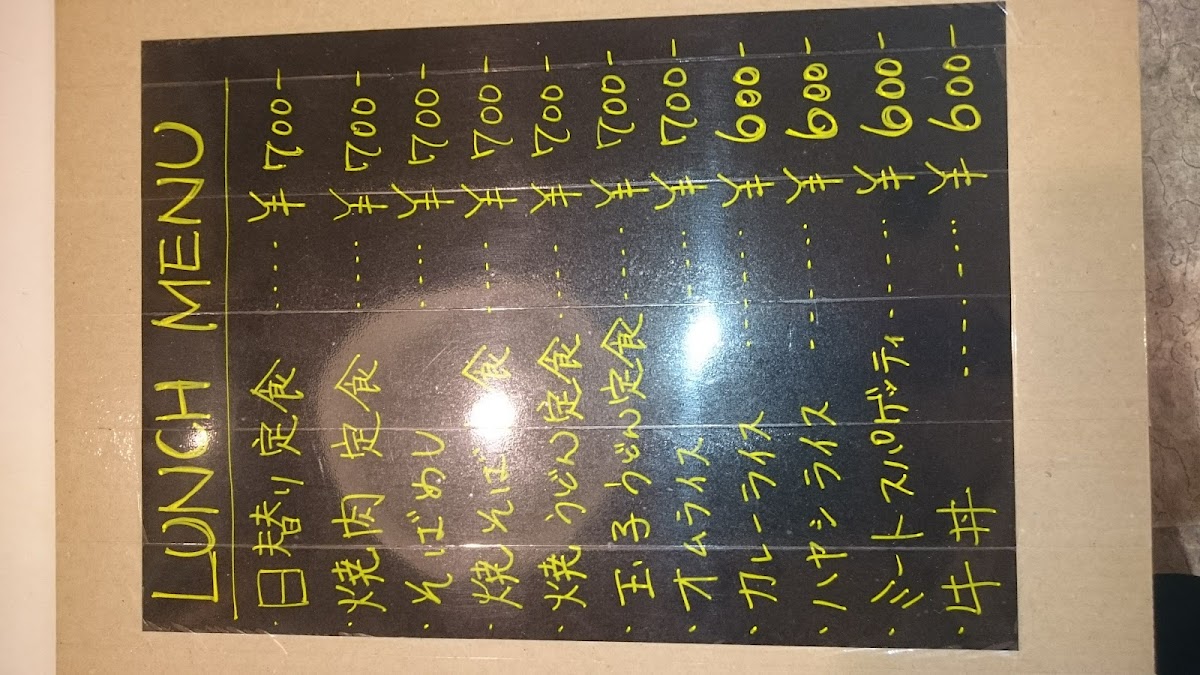 LUNCH MENU
・日替り定食 ‥‥ ¥700-
・焼肉 定食 ‥‥ ¥700-
・そばめし ‥‥ ¥700-
・焼そば 食 ‥‥ ¥700-
・焼うどん定食 ‥‥ ¥700-
・玉子うどん定食 ‥‥ ¥700-
・オムライス ‥‥ ¥700-
・カレーライス ‥‥‥ ¥600-
・ハヤシライス ‥‥‥ ¥600-
・ミートスパゲッティ ‥‥ ¥600-
・牛丼 ‥‥‥‥ ¥600-